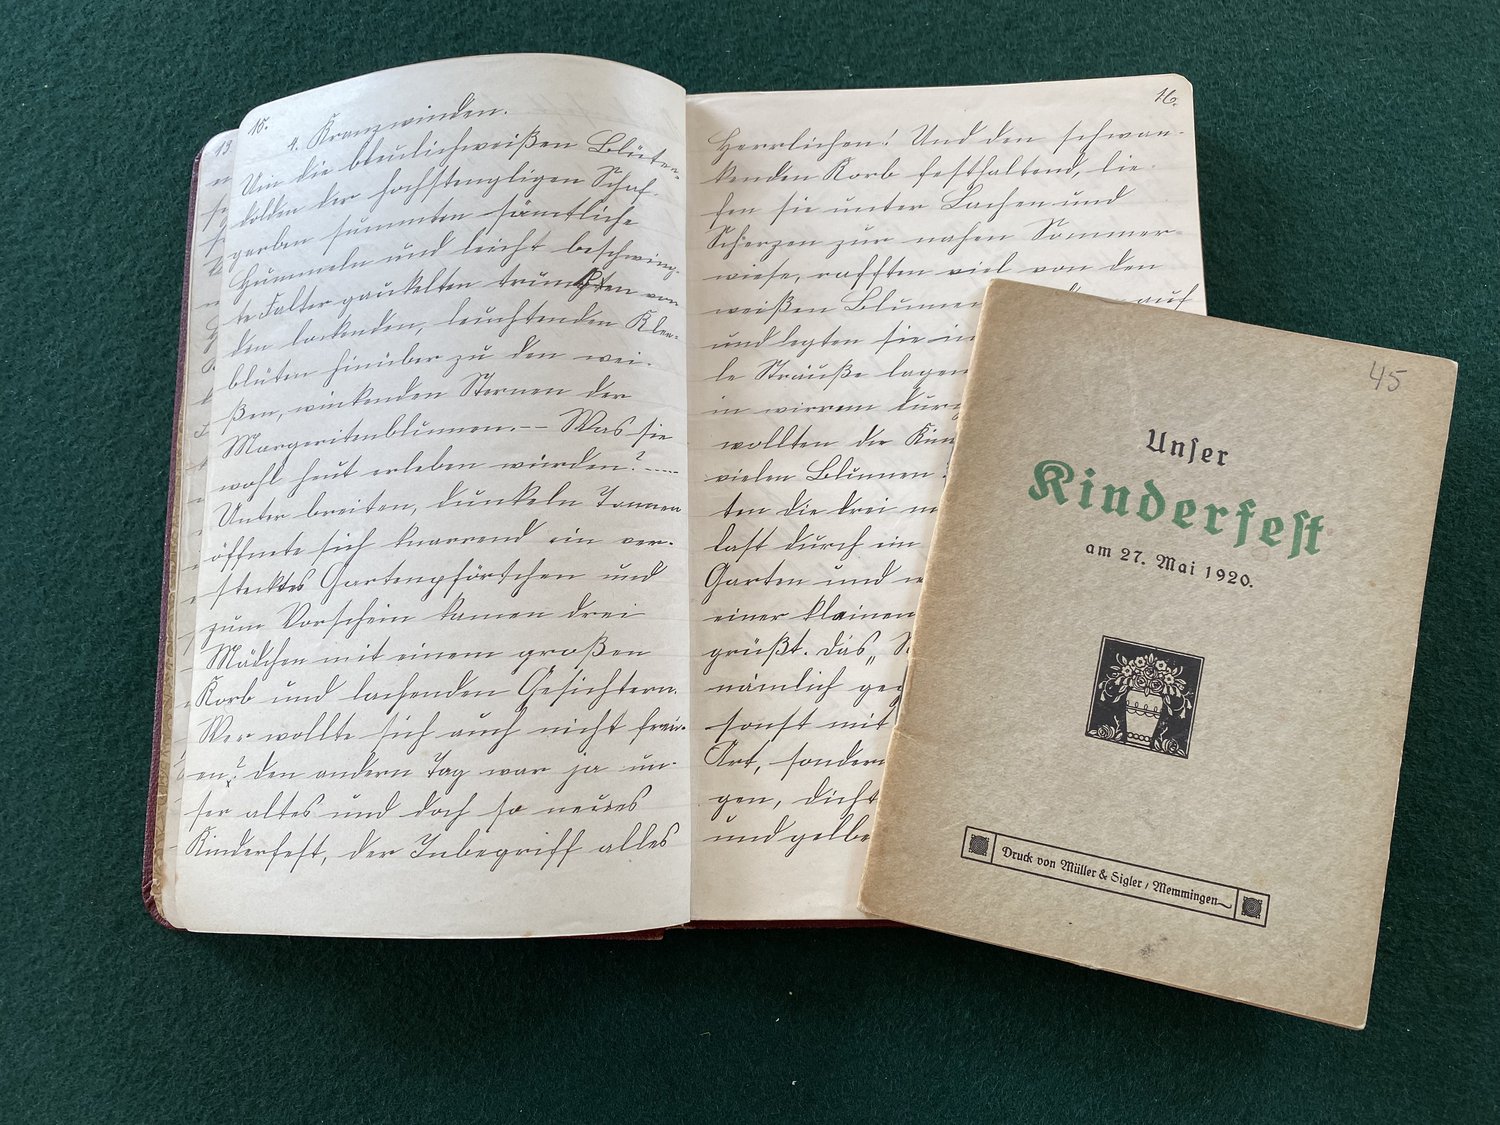 15.
4. Kranzwinden.
Um die bläulichweißen Blüten-
dolden der hochstengligen Schaf-
garben summten sämtliche
Hummeln und leicht beschwing-
te Falter gaukelten trunken von
den lockenden, leuchtenden Klee-
blüten hinüber zu den wei-
ßen, winkenden Sternen der
Margeritenblumen.-- Was sie
wohl heut erleben würden?
Unter breiten, dunkeln Tannen
öffnete sich knarrend ein ver-
stecktes Gartenpförtchen und
zum Vorschein kamen drei
Mädchen mit einem großen
Korb und lachenden Gesichtern.
Wer wollte sich auch nicht freu-
en? Den andern Tag war ja un-
ser altes und doch so neues
Kinderfest, der Inbegriff alles
16.
Herrlichen! Und den schwan-
kenden Korb festhaltend, lie-
fen sie unter Lachen und
Scherzen zur nahen Sommer-
wiese, rafften viel von den
weißen Blumen auf
und legten sie in
le Sträuße lagen
in wirrem
wollten die
vielen Blumen
ten die drei
last durch ein
Garten und
einer kleinen
grüßt. Das
nämlich
sonst mit
Art, sondern
gen, dicht
und gelbe
45
Unser
Kinderfest
am 27. Mai 1920.
Druck von Müller & Sigler / Memmingen